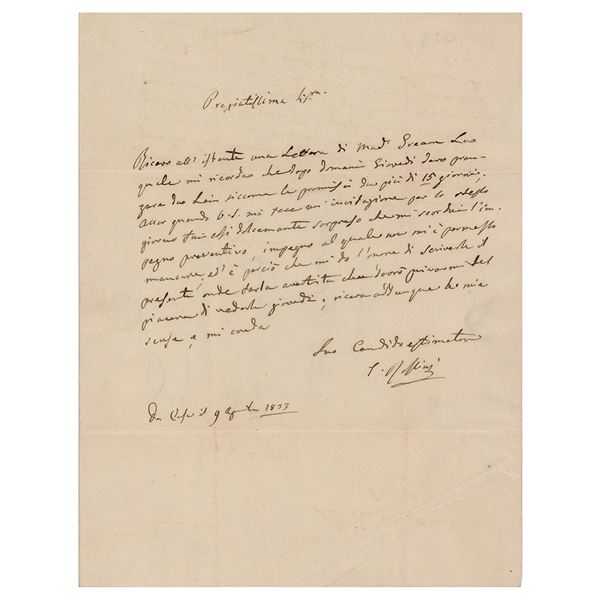 Pregiatissima Sig.ra
Ricevo all'istante una Lettera di Mad.
quale mi ricorda che dopo domani Giovedi devo pran-
zare da Lei siccome le promisi da più di 15 giorni,
allor quando V.S. mi fece un'invitazione per lo stesso
giorno fui così dolcemente sorpreso che mi scordai l'im-
pegno preventivo, impegno al quale non mi è permesso
mancare, ed è perciò che mi do l'onore di scriverle il
presente onde farla avertita che dovrò privarmi del
piacere di vederla giovedi; riceva addunque le mie
scuse, e mi creda
Suo Candido estimatore
G. Rossini
Da Casa il 9 Aprile 1833